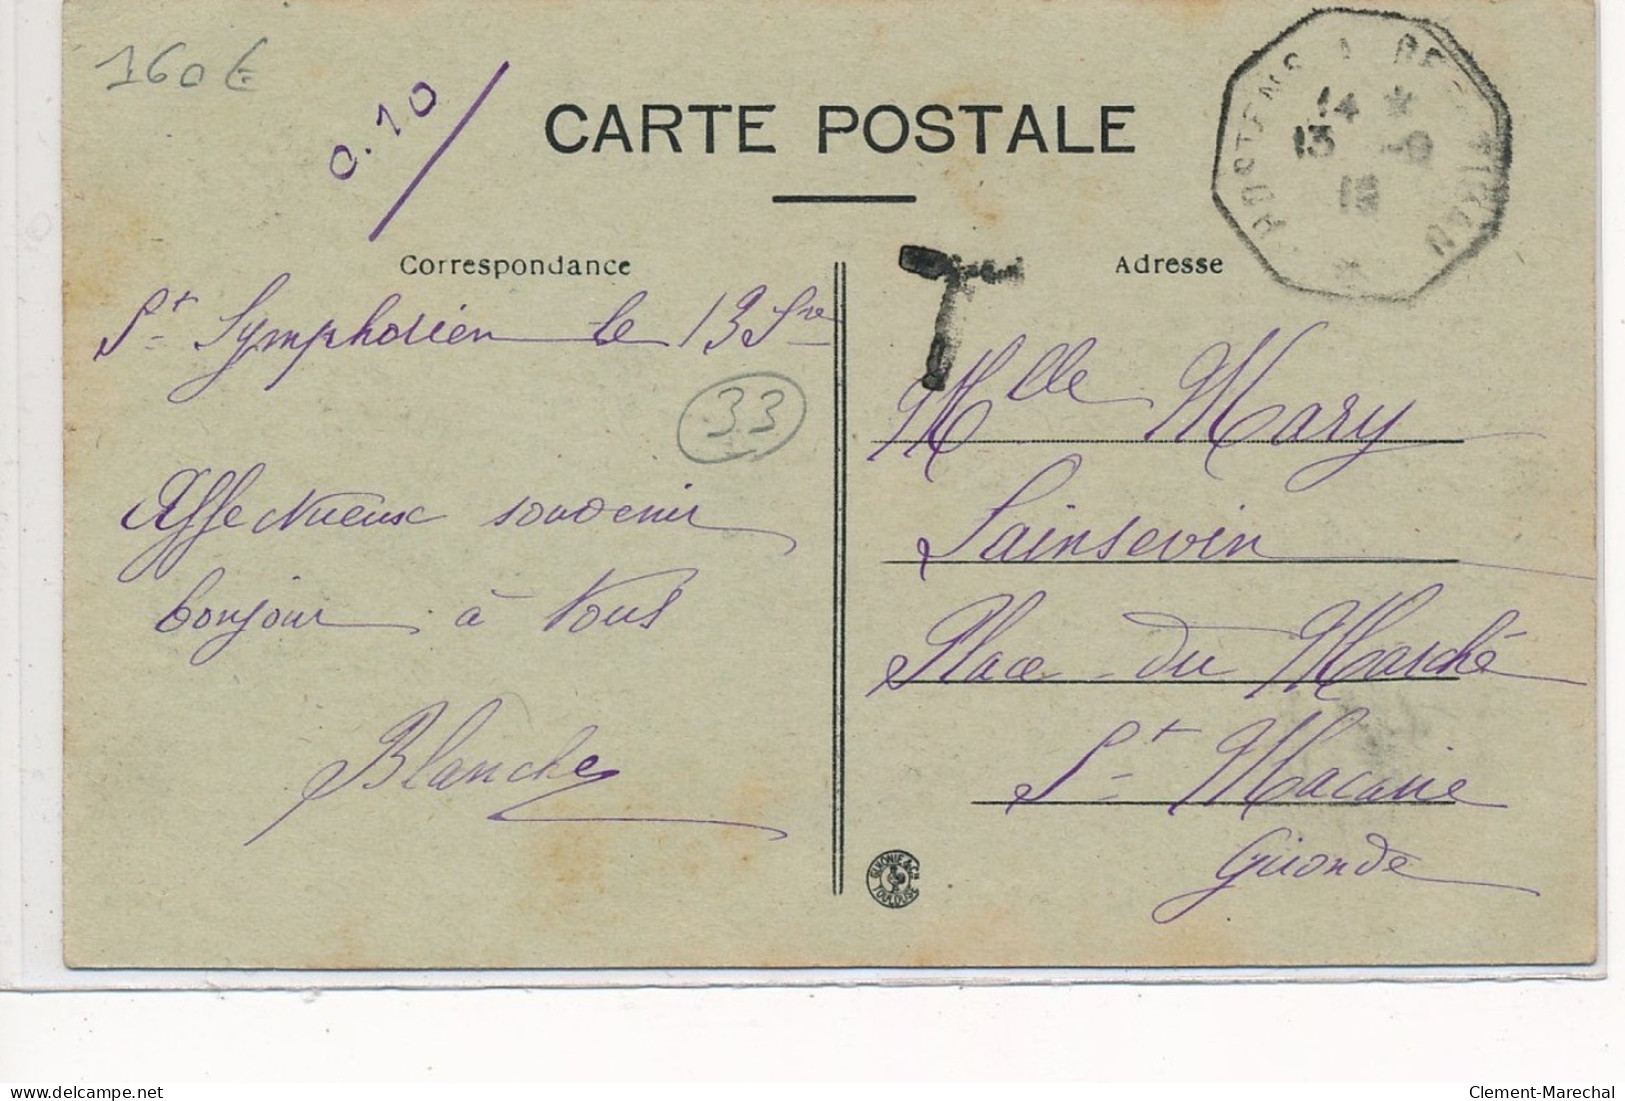 160€
0.10
CARTE POSTALE
HOSTENS A BE
14 *
13
Correspondance
Adresse
St Symphorien le 13 Sbre
33
Affectueux souvenir
bonjour à vous
Blanche
T
Mlle Mary
Sainsevin
Place du Marché
St Macaire
Gironde
TOULOUSE
Clement-Marechal